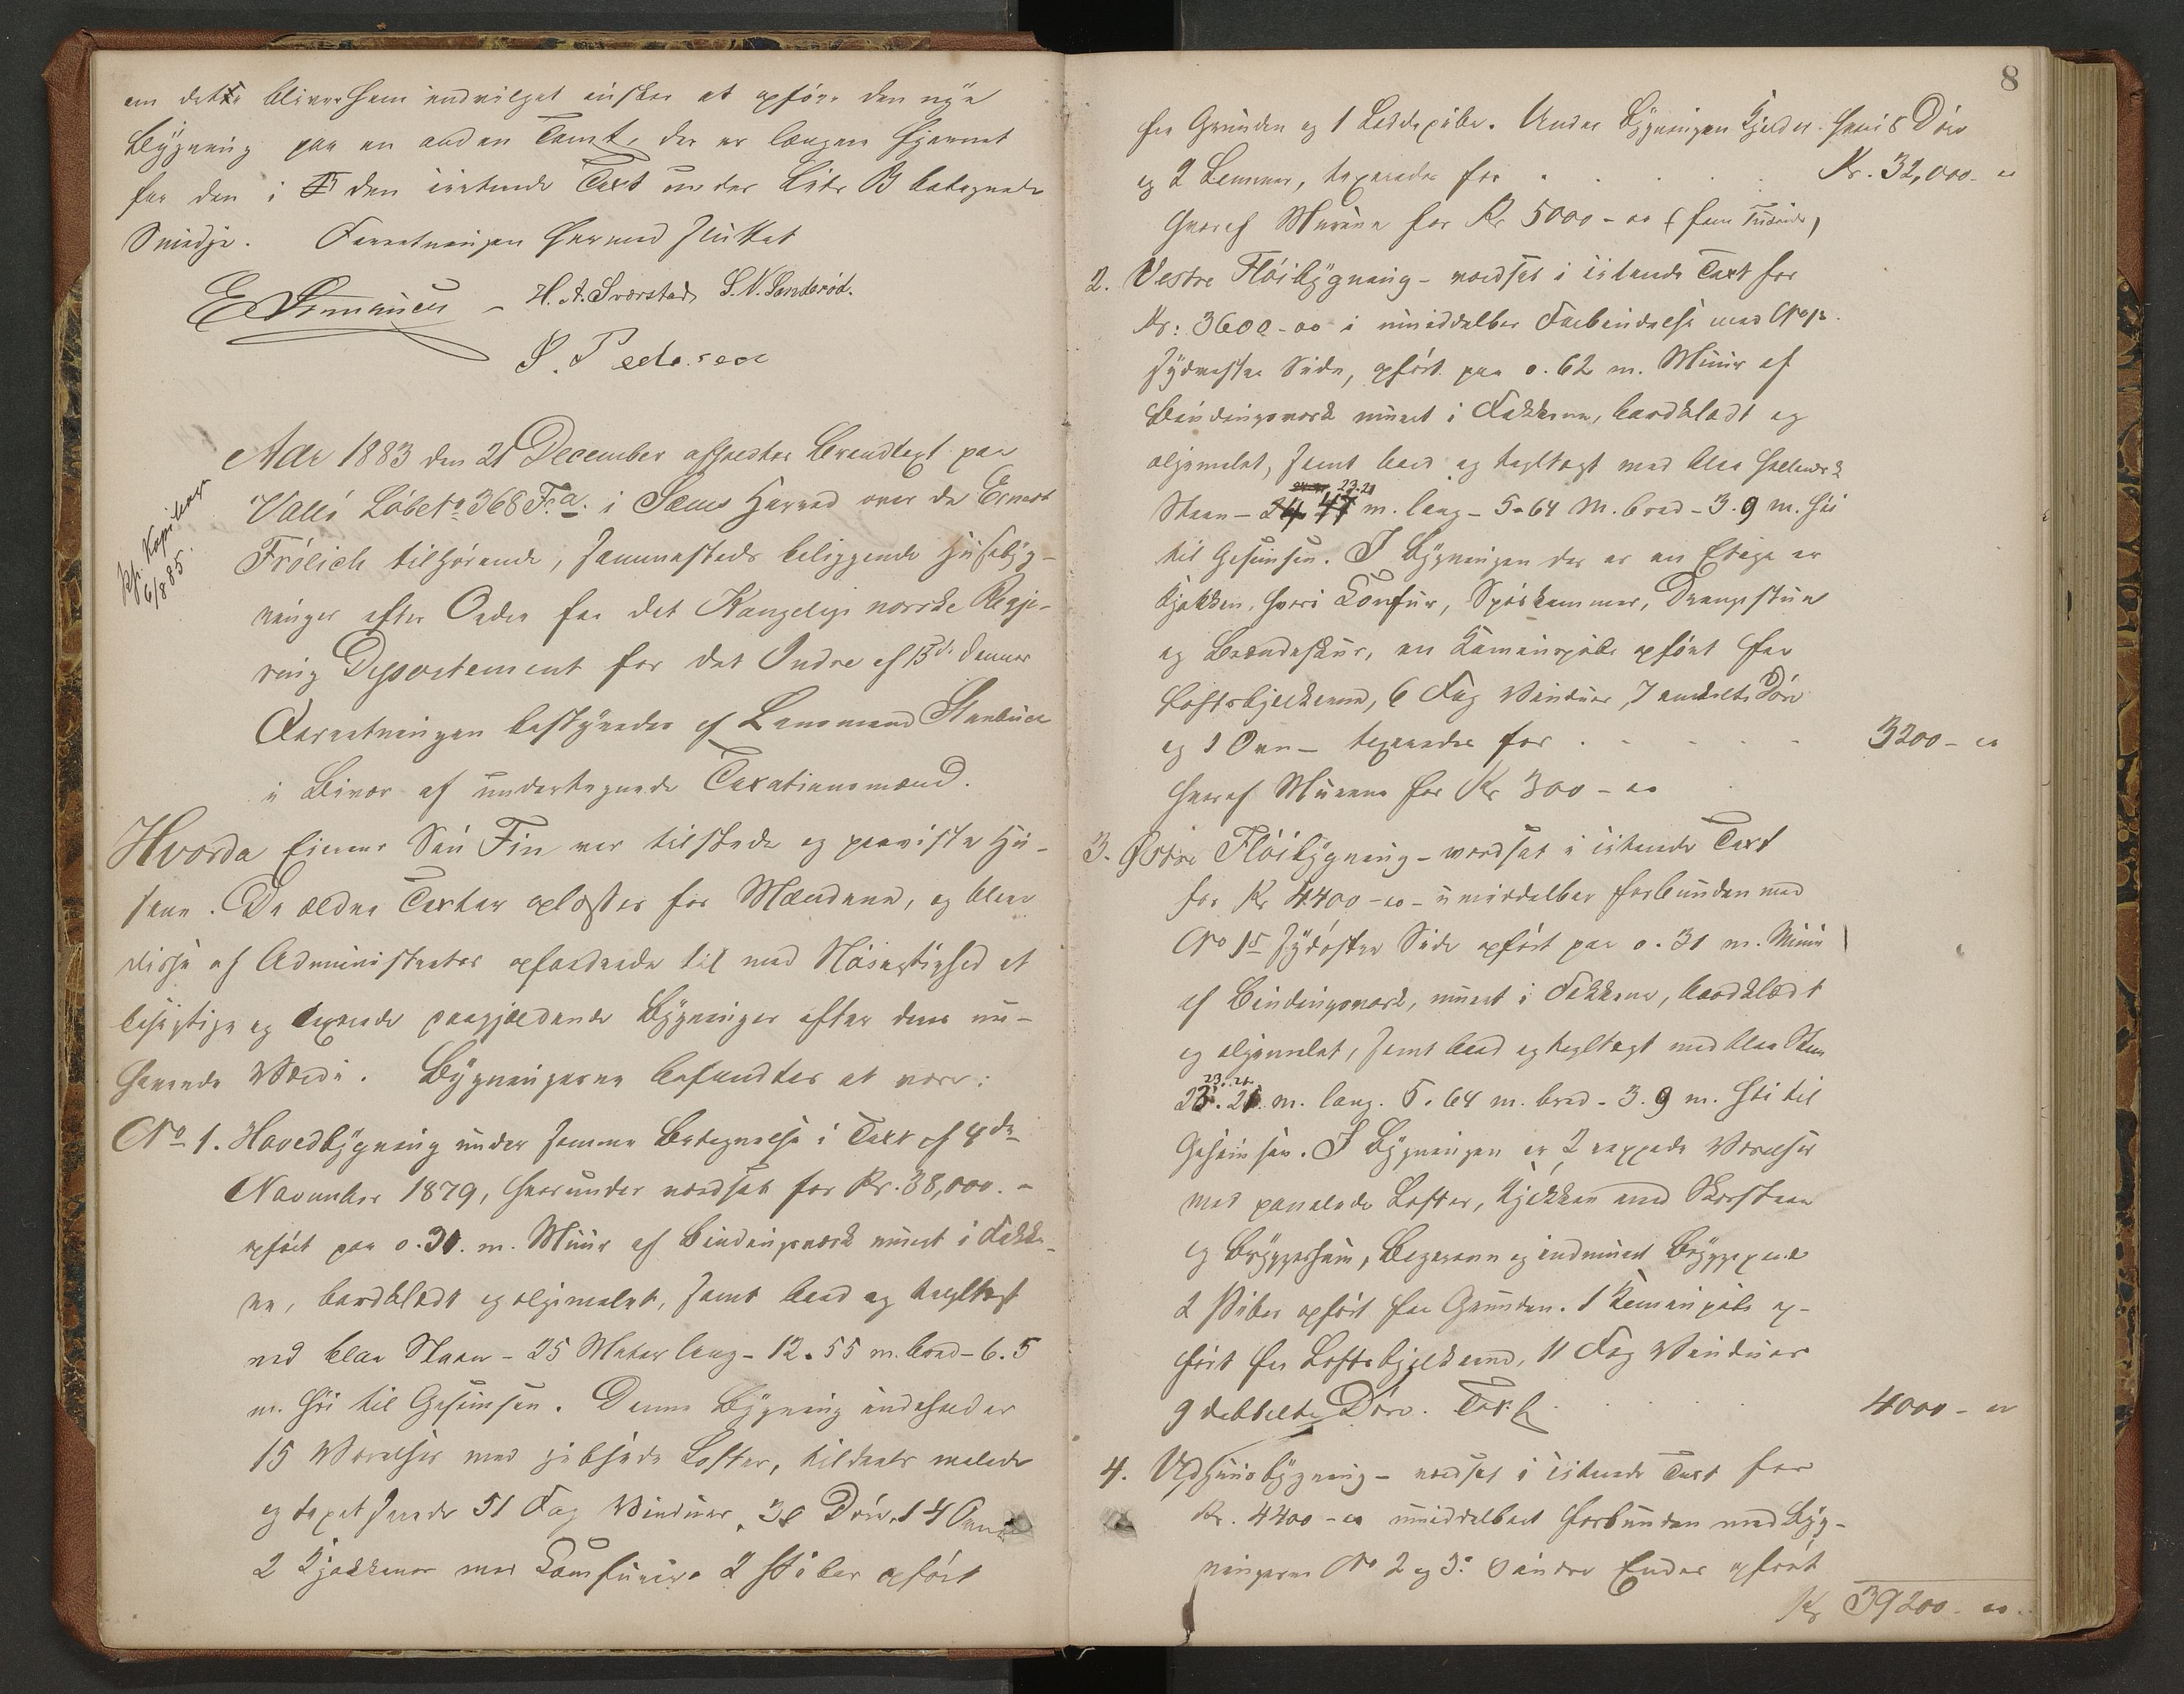 om dette bliver ham indvilget ønsker at opføre den nye
Bygning paa en anden Tomt, der er længere fjernet
fra den i den ældre Taxt under Litr B betegnede
Smedje. Forretningen hermed sluttet
H. A. Sværstad S. N. Sanderød.
S. Pedersen
Kfr. Kopibog
6/8 85.
Aar 1883 den 21 December afholdtes Brandtaxt paa
Vallø Løbe No 368 Fr. a. i Sæms Herred over de Ernest
Frölich tilhørende, sammesteds beliggende Husebyg-
ninger efter Ordre fra det Kongelige norske Regje-
ring Departement for det Indre af 13de dennes
Forretningen bestyredes af Lensmand
i Bivær af undertegnede Taxationsmænd.
Hvorda Eierens Søn Fin var tilstede og paaviste Hu-
sene. De ældre Taxter oplæstes for Mændene, og blev
disse af Administrator opfordrede til med Nøiagtighed at
besigtige og taxere paagjældende Bygninger efter deres nu-
havende Værdi. Bygningerne befandtes at være:
No 1. Hovedbygning under samme Betegnelse i Taxt af 4de
November 1879, herunder værdsat for Kr. 38,000.-
opført paa 0.31. m. Muur af Bindingsværk muret i Fakke-
ne, bordklædt og oljemalet, samt bord og tegltagt
med blaa Steen - 25 Meter lang - 12.55 m. bred - 6.5
m. høi til Gesimsen. Denne Bygning indeholder
15 Værelser med gibsede Lofter, tildeels malede
og tapetserede 51 Fag Vinduer, 38 Døre, 14 Ovne
2 Kjøkkener med Comfurer. 2 Piber opført
8
fra Grunden og 1 Loddepibe. Under Bygningen Kjelder hvori 8 Døre
og 2 Lemmer, taxeredes for . . . . . Kr. 32,000- oo
Hvoraf Murene for Kr 5000 - oo (fem Tusinde)
2. Vestre Fløibygning - værdsat i ældende Taxt for
Kr: 3600 - oo i umiddelbar Forbindelse med No 1s
sydvestre Side, opført paa 0.62 m. Muur af
Bindingsværk muret i Fakkerne, bordklædt og
oljemalet, samt bord og tegltagt med blaa hollandsk
23.21
Steen - m. lang - 5.64 M. bred - 3.9 m. høi
til Gesimsen. I Bygningen der er en Etage er
Kjøkken, hvori Comfur, Spiskammer, Drengestue
og Brændeskur, en Kaminpibe opført fra
Loftsbjelkerne, 6 Fag Vinduer, 7 enkelte Døre
og 1 Ovn - taxeredes for . . . . . 3200 - oo
Hvoraf Murene for Kr 300 - oo
3. Østre Fløibygning - værdsat i ældende Taxt
for Kr 4400 - oo - umiddelbar forbunden med
No 1s sydøstre Side opført paa 0.31 m. Muur
af Bindingsværk, muret i Fakkerne, bordklædt
og oljemalet, samt bord og tegltagt med blaa Steen
23.21.
23.21 m. lang. 5.64 m. bred - 3.9 m. høi til
Gesimsen. I Bygningen er 2 rappede Værelser
med panelede Lofter, Kjøkken med Skorsteen
og Bryggerhuus, Bagerovn og indmuret Bryggepande
2 Piber opført fra Grunden. 1 Kaminpibe op-
ført fra Loftsbjelkerne, 11 Fag Vinduer
9 dobbelte Døre. Tax. f. . . . . . 4000 - oo
4. Udhuusbygning - værdsat i ældende Taxt for
Kr. 4400 - oo umiddelbart forbunden med Byg-
ningerne No 2 og 3s søndre Ender opført
Kr 39200 - oo.